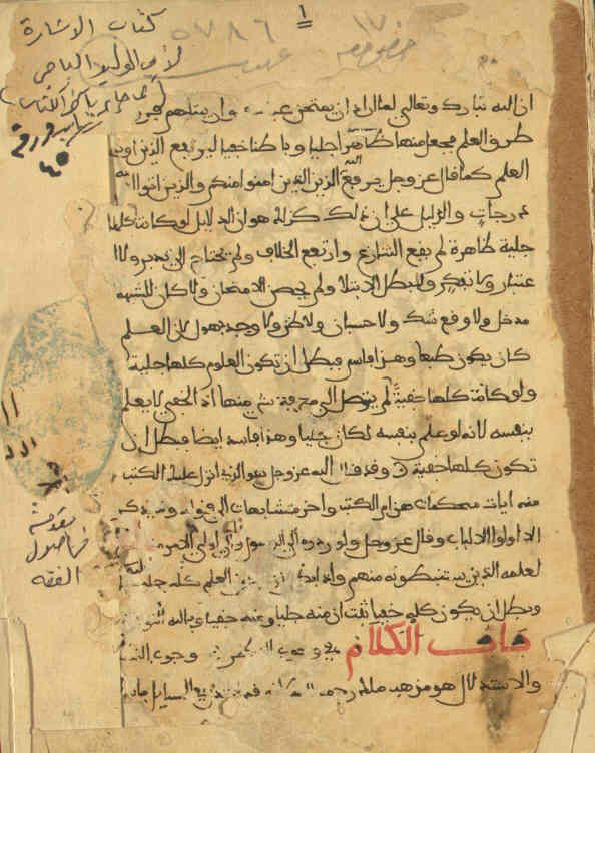 ١
كتاب الاشارة
لأبي الوليد الباجي
٥٧٨٦
١٧٠
ان الله تبارك وتعالى لما اراد ان يمتحن عباده وان يبتليهم فرق
طرق العلم فجعل منها ظاهرا جليا وباطنا خفيا ليرفع الذين اوتوا
العلم كما قال عز وجل يرفع الله الذين امنوا منكم والذين اتوا العلم
درجات والدليل على ان ذلك كذلك هو ان الدلايل لو كانت كلها
جلية ظاهرة لم يقع التنازع وارتفع الخلاف ولم يحتج الى تدبر ولا ا
عتبار ولا تفكر ولبطل الابتلا ولم يحصل الامتحان ولا كان للشبهة
مدخل ولا وقع شك ولا حسبان ولا ظن ولا وجد جهول لان العلم
كان يكون طبعا وهذا فاسد فبطل ان تكون العلوم كلها جلية
ولو كانت كلها خفية لم يتوصل الى معرفة شي منها اذ الخفي لا يعلم
بنفسه لانه لو علم بنفسه لكان جليا وهذا فاسد ايضا فبطل ان
تكون كلها خفية وقد قال الله عز وجل هو الذي انزل عليك الكتب
منه ايات محكمات هن ام الكتب واخر متشابهات الى قوله وما يذكر
الا اولوا الالباب وقال عز وجل ولو ردوه الى الرسول والى اولي الامر منهم
لعلمه الذين يستنبطونه منهم واذا بطل ان يكون العلم كله جليا
وبطل ان يكون كله خفيا ثبت ان منه جليا ومنه خفيا وبالله التوفيق
باب الكلام في وجوب النظر وجوب النظر
والاستدلال هو مذهب ملك رحمه الله
مقدمة
في اصول
الفقه